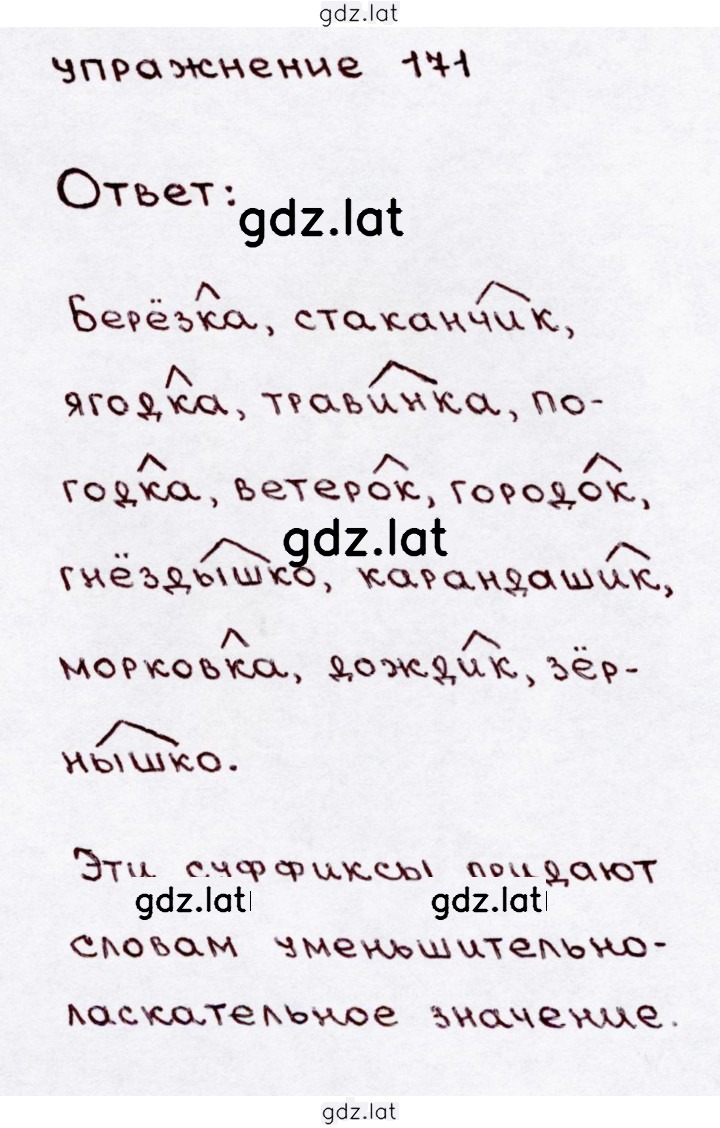 gdz.lat
упражнение 171
Ответ:
gdz.lat
Берёзка, стаканчик,
ягодка, травинка, по-
годка, ветерок, городок,
gdz.lat
гнёздышко, карандашик,
морковка, дождик, зёр-
нышко.
Эти суффиксы придают
gdz.lat gdz.lat
словам уменьшительно-
ласкательное значение.
gdz.lat